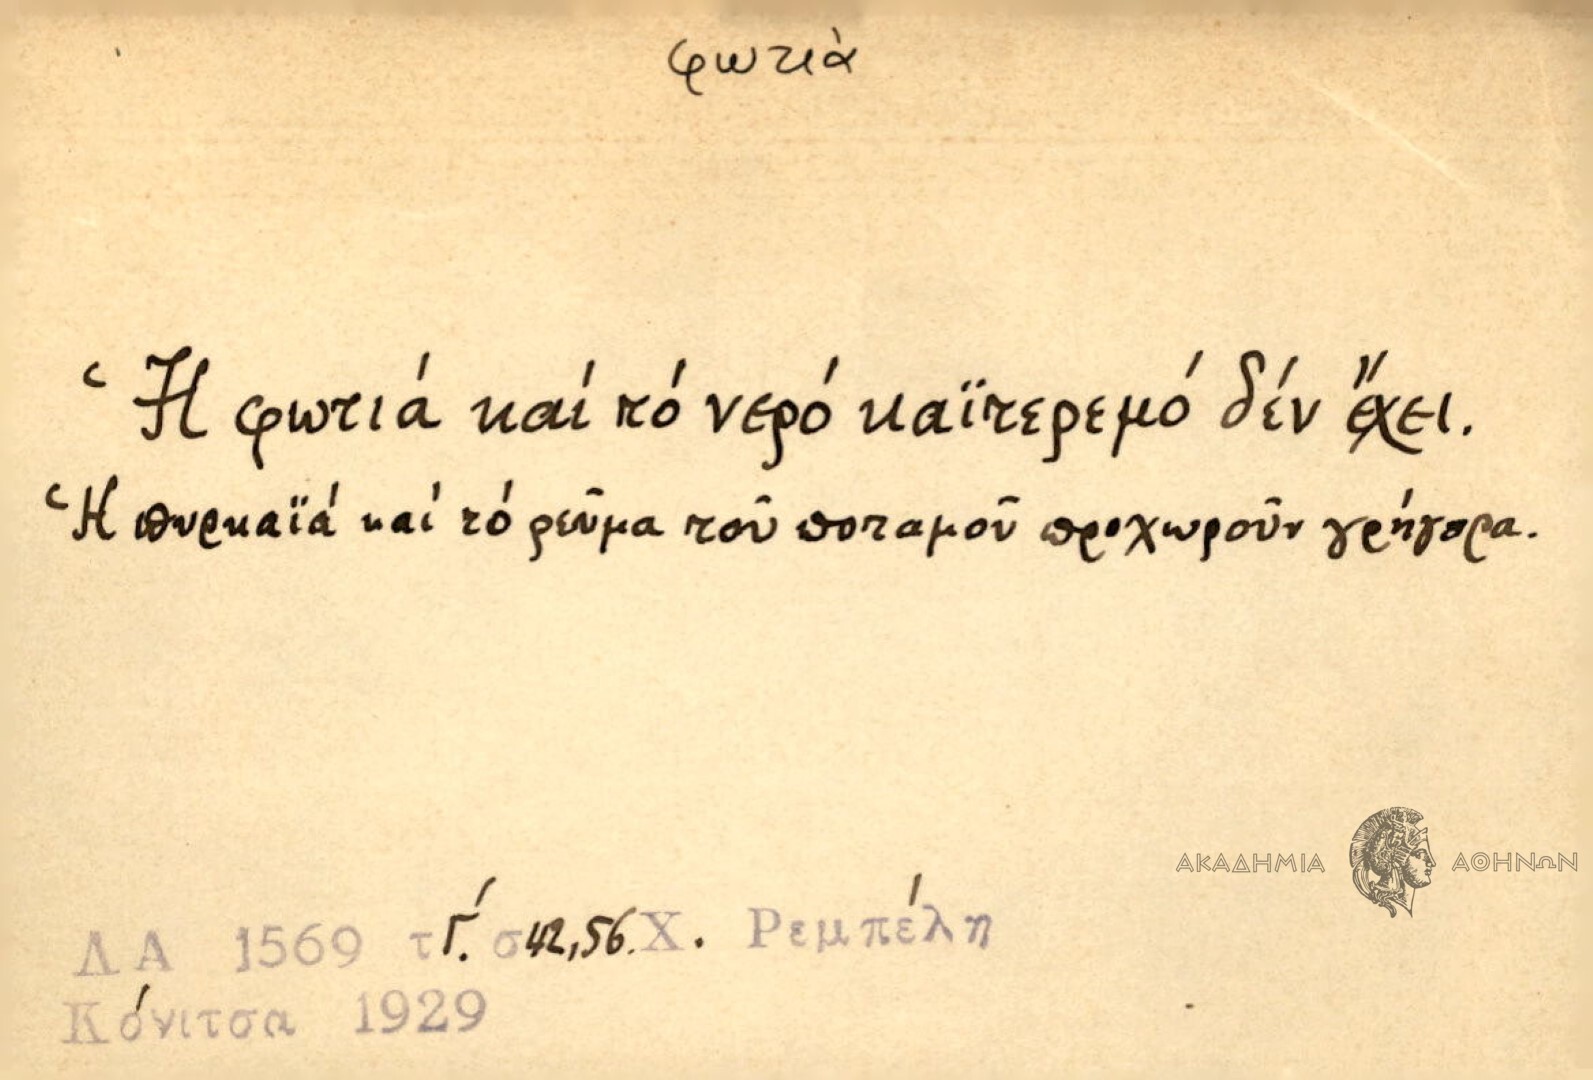 φωτιὰ
Ἡ φωτιά καί τό νερό καϊτερεμό δέν ἔχει.
Ἡ πυρκαϊά καί τό ρεῦμα τοῦ ποταμοῦ προχωροῦν γρήγορα.
ΑΚΑΔΗΜΙΑ ΑΘΗΝΩΝ
ΛΑ 1569 τΓ΄. σ42,56. Χ. Ρεμπέλη
Κόνιτσα 1929